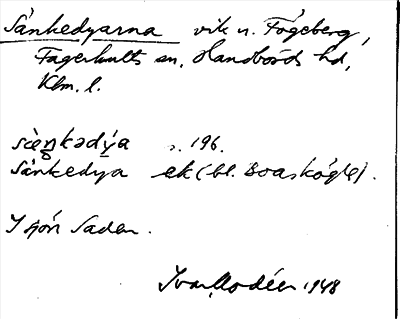 Sånkedyarna vik n. Fogeberg,
Fagerhults sn, Handbörds hd,
Klm. l.
s. 196.
Sånkedya ek (bl. Boaskögle).
I sjön Saden.
Ivar Modéer 1948